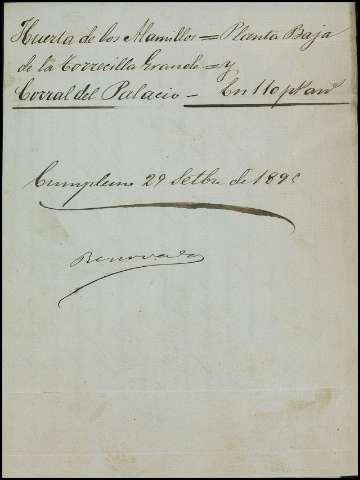 Huerta de los Alamillos = Planta Baja
de la Torrecilla Grande = y
Corral del Palacio - En 110 ptas
Cumplen 29 Setbre de 189
Renovada